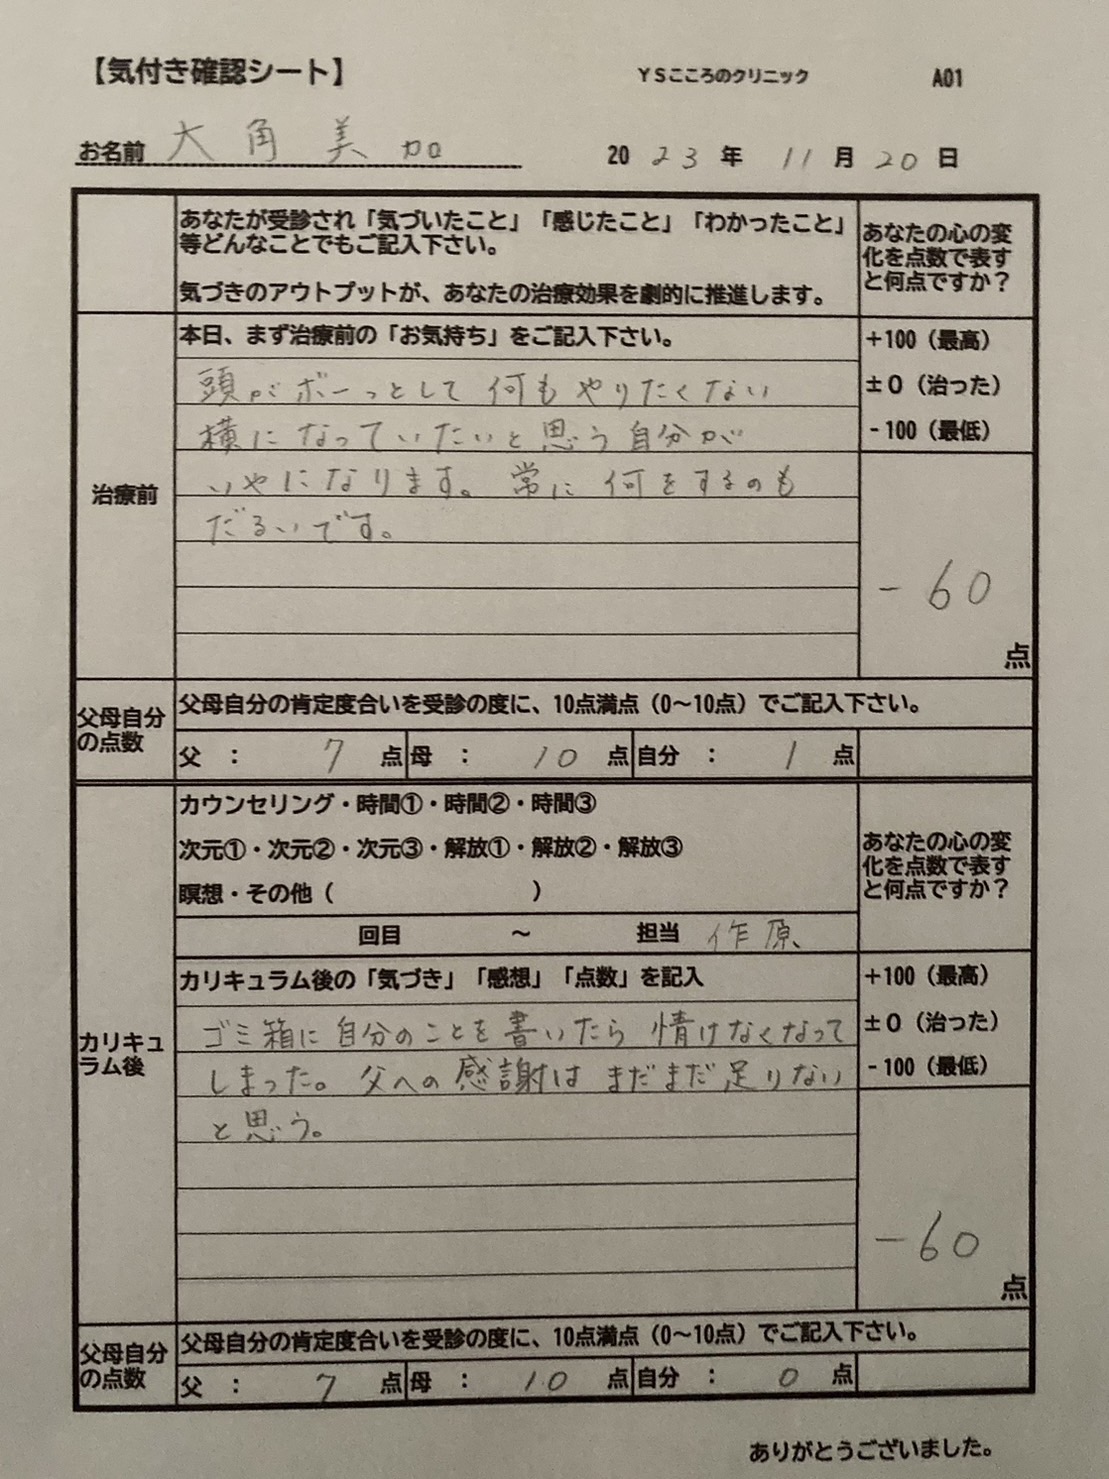 【気付き確認シート】 YSこころのクリニック A01
お名前 大角 美加 2023年 11月20日
あなたが受診され「気づいたこと」「感じたこと」「わかったこと」
等どんなことでもご記入下さい。
気づきのアウトプットが、あなたの治療効果を劇的に推進します。
あなたの心の変
化を点数で表す
と何点ですか？
治療前
本日、まず治療前の「お気持ち」をご記入下さい。
頭がボーっとして 何もやりたくない
横になっていたいと思う自分が
いやになります。常に何をするのも
だるいです。
+100（最高）
±0（治った）
-100（最低）
-60
点
父母自分
の点数
父母自分の肯定度合いを受診の度に、10点満点（0〜10点）でご記入下さい。
父 ： 7 点 母 ： 10 点 自分 ： 1 点
カリキュ
ラム後
カウンセリング・時間①・時間②・時間③
次元①・次元②・次元③・解放①・解放②・解放③
瞑想・その他（ ）
回目 〜 担当 作原
あなたの心の変
化を点数で表す
と何点ですか？
カリキュラム後の「気づき」「感想」「点数」を記入
ゴミ箱に自分のことを書いたら 情けなくなって
しまった。父への感謝はまだまだ足りない
と思う。
+100（最高）
±0（治った）
-100（最低）
-60
点
父母自分
の点数
父母自分の肯定度合いを受診の度に、10点満点（0〜10点）でご記入下さい。
父 ： 7 点 母 ： 10 点 自分 ： 0 点
ありがとうございました。